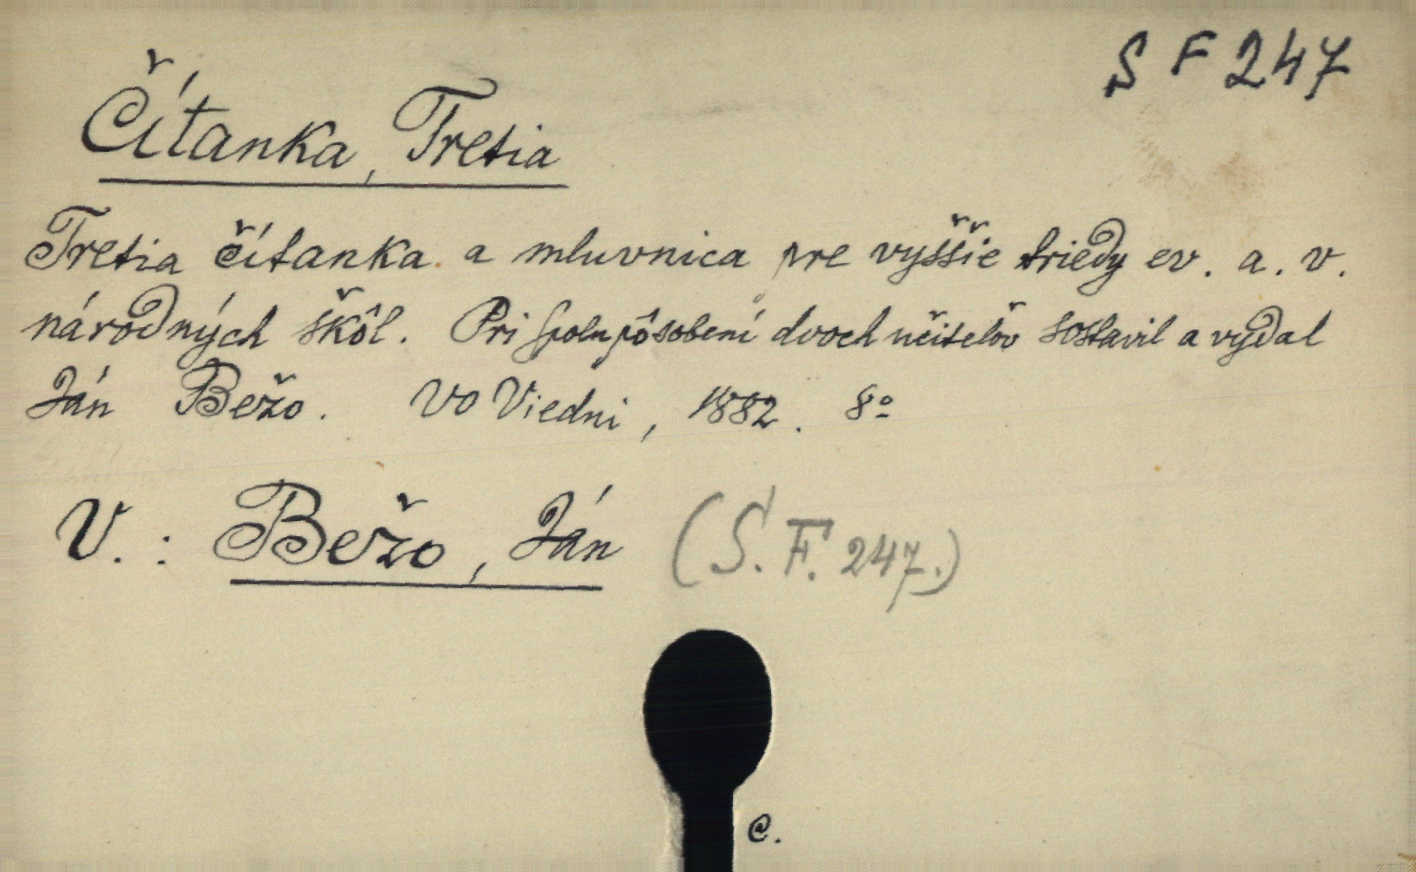 S F 247
Čítanka, Tretia
Tretia čítanka a mluvnica pre vyššie triedy ev. a. v.
národných škôl. Pri spolupôsobení dvoch učitelov sostavil a vydal
Ján Bežo. Vo Viedni, 1882. 8º
V. : Bežo, Ján (S. F. 247.)
C.